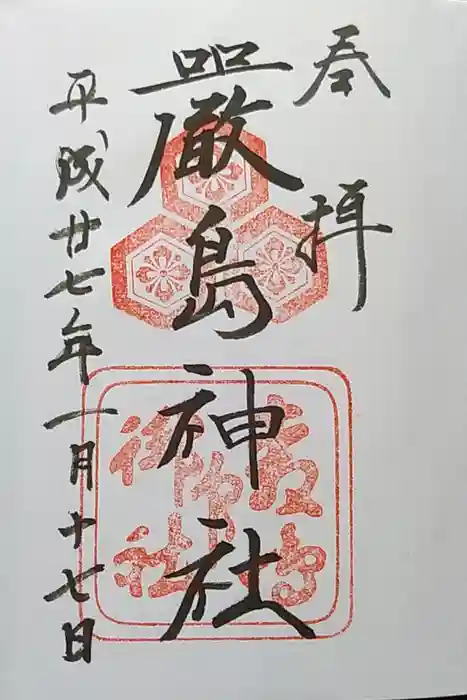 奉拝
嚴島神社
平成廿七年一月十七日